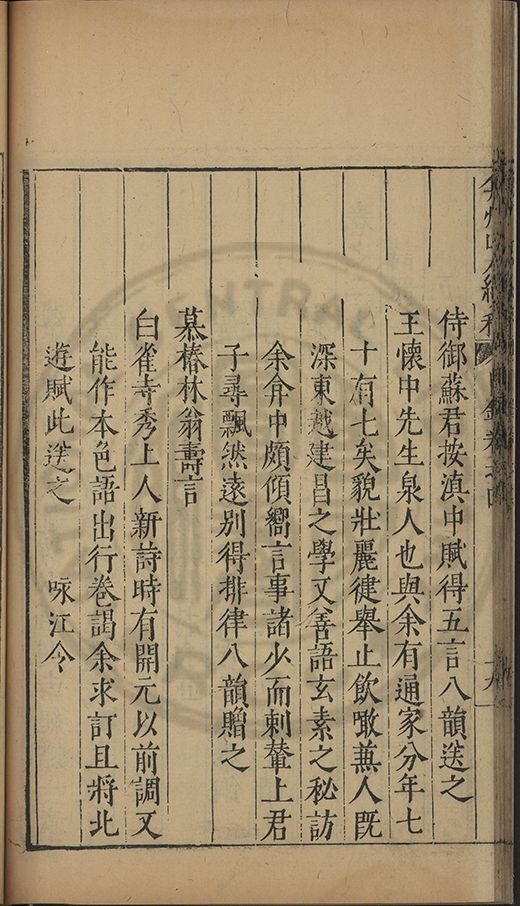 弇州山人續稿 目錄卷之四
侍御蘇君按滇中賦得五言八韻送之
王懷中先生泉人也與余有通家分年七
十有七矣貌壯麗徤舉止飲噉蒹人既
深東越建昌之學又善語玄素之秘訪
余弇中頗傾嚮言事諸少而刺輦上君
子尋飄然遠別得排律八韻贈之
慕椿林翁壽言
白雀寺秀上人新詩時有開元以前調又
能作本色語出行卷謁余求訂且將北
遊賦此送之　咏江令